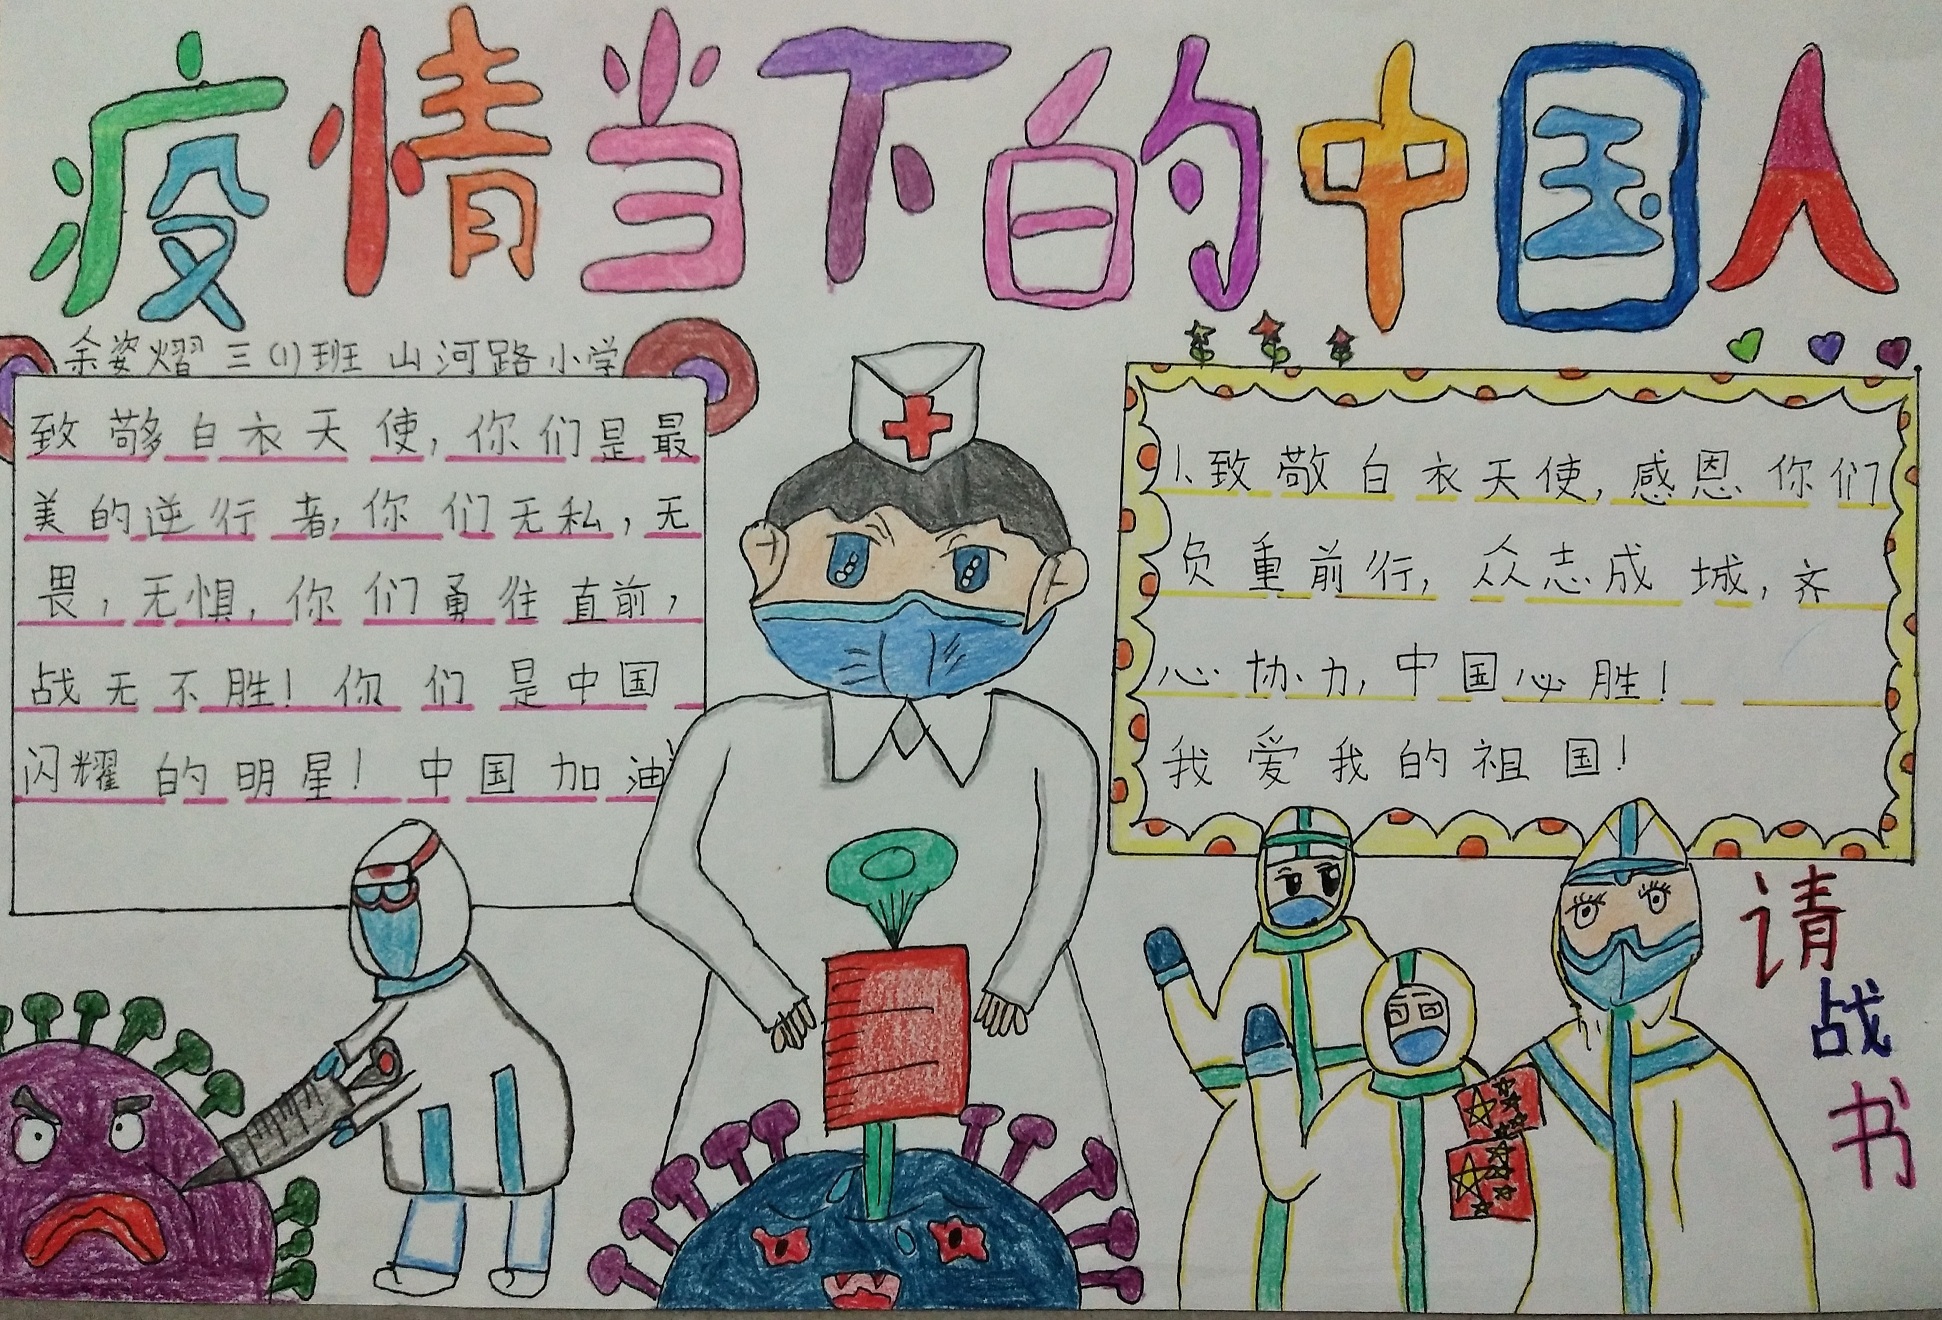 疫情当下的中国人
余姿熠 三(1)班 山河路小学
致敬白衣天使,你们是最
美的逆行者,你们无私,无
畏,无惧,你们勇往直前,
战无不胜!你们是中国
闪耀的明星!中国加油!
1、致敬白衣天使,感恩你们
负重前行,众志成城,齐
心协力,中国必胜!
我爱我的祖国!
请战书